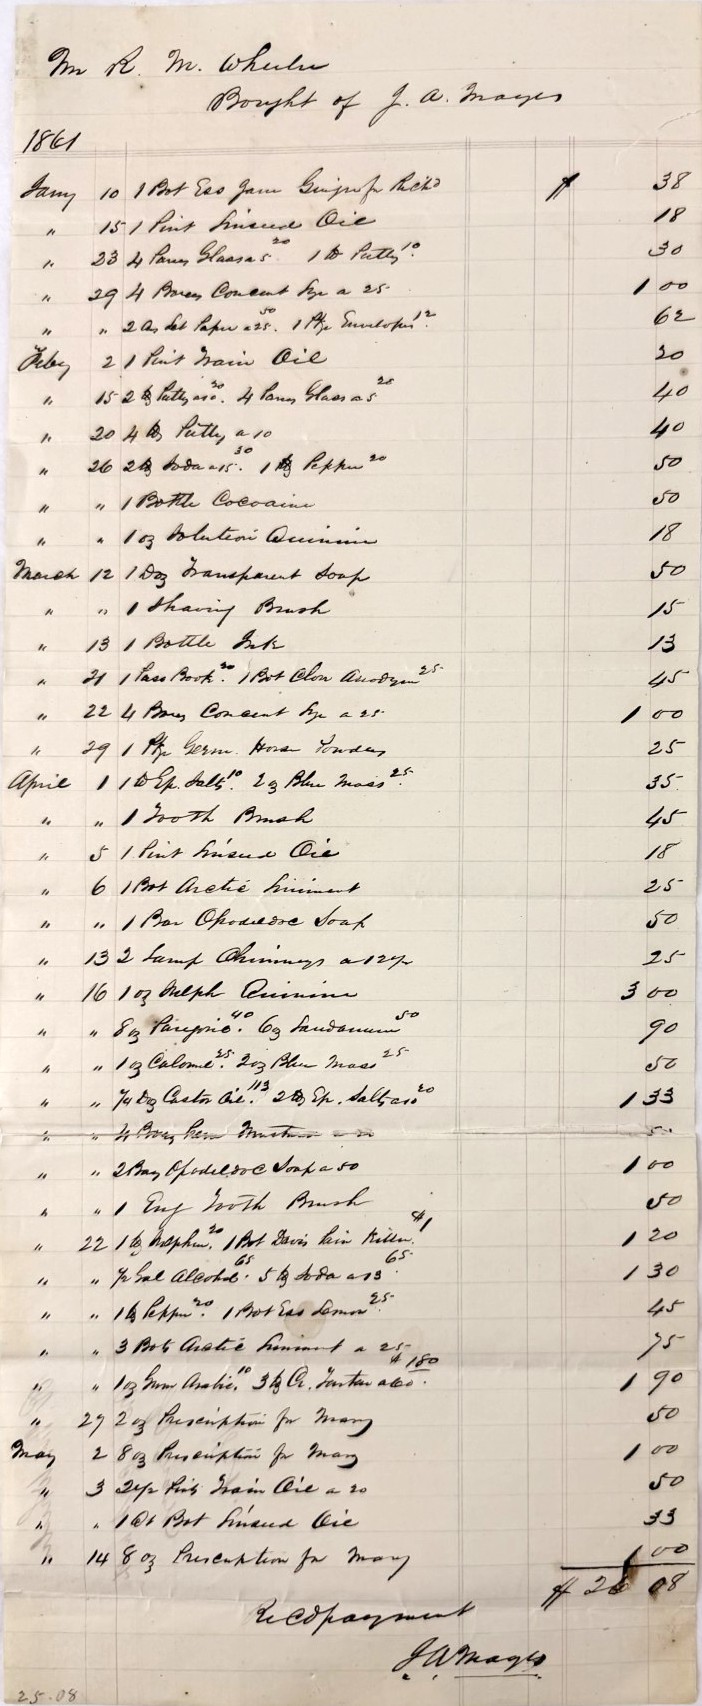 Mr R. M. Wheeler
Bought of J. A. Mayes
1861
Jany 10 1 Bot Ess Jam Ginger for Rich'd $ 38
" 15 1 Pint Linseed Oil 18
" 23 4 Panes Glass a 5 20 1 lb Putty 10 30
" 29 4 Boxes Concent Lye a 25 1 00
" " 2 Qs Let Paper a 25. 50 1 Pkge Envelopes 12. 62
Feby 2 1 Pint Train Oil 20
" 15 2 lbs Putty a 10. 20 4 Panes Glass a 5 20 40
" 20 4 lbs Putty a 10 40
" 26 2 lbs Soda a 15. 30 1 lb Pepper 20 50
" " 1 Bottle Cocoaine 50
" " 1 oz Solution Quinine 18
March 12 1 Doz Transparent Soap 50
" " 1 Shaving Brush 15
" 13 1 Bottle Ink 13
" 21 1 Pass Book. 20 1 Bot Clon Anodyne 25 45
" 22 4 Boxes Concent Lye a 25 1 00
" 29 1 Pkge Germ. Horse Powders 25
April 1 1 lb Ep. Salts 10. 2 oz Blue Mass 25. 35
" " 1 Tooth Brush 45
" 5 1 Pint Linseed Oil 18
" 6 1 Bot Arctic Liniment 25
" " 1 Bar Opodeldoc Soap 50
" 13 2 Lamp Chimneys a 12½ 25
" 16 1 oz Sulph Quinine 3 00
" " 8 oz Paregoric. 40 6 oz Laudanum 50 90
" " 1 oz Calomel. 25 2 oz Blue Mass 25 50
" " Doz Castor Oil. 113 2 lbs Ep. Salts a 10 20 1 33
" " 4 Boxes Mustard a
" " 2 Bars Opodeldoc Soap a 50 1 00
" " 1 Eng Tooth Brush 50
" 22 1 lb Sulphur. 20 1 Bot Davis Pain Killer. $1 1 20
" " ½ Gal Alcohol. 65 5 lbs Soda a 13. 65 1 30
" " 1 lb Pepper 20. 1 Bot Ess Lemon 25. 45
" " 3 Bots Arctic Liniment a 25 75
" " 1 oz Gum Arabic. 10 3 lbs Cr. Tartar a 60. $180 1 90
" 27 2 oz Prescription for Mary 50
May 2 8 oz Prescription for Mary 1 00
" 3 2½ Pints Train Oil a 20 50
" " 1 Qt Bot Linseed Oil 33
" 14 8 oz Prescription for Mary 1 00
$ 26 08
Recd payment
J A Mayes
25.08